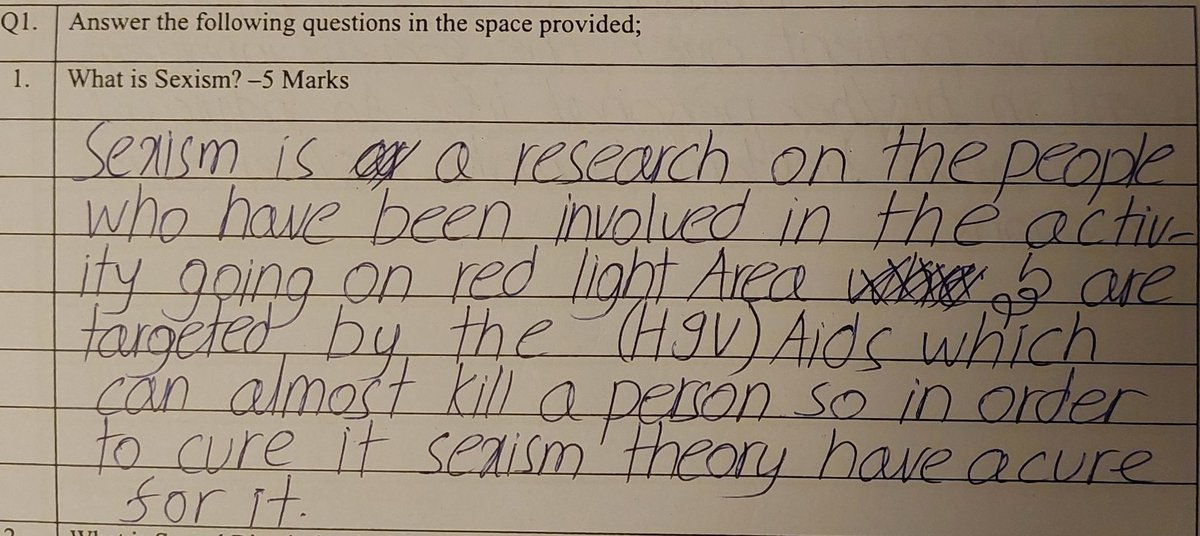 Q1. Answer the following questions in the space provided;
1. What is Sexism? –5 Marks
Sexism is a research on the people
who have been involved in the activ-
ity going on red light Area & are
targeted by the (HIV) Aids which
can almost kill a person so in order
to cure it sexism theory have a cure
for it.